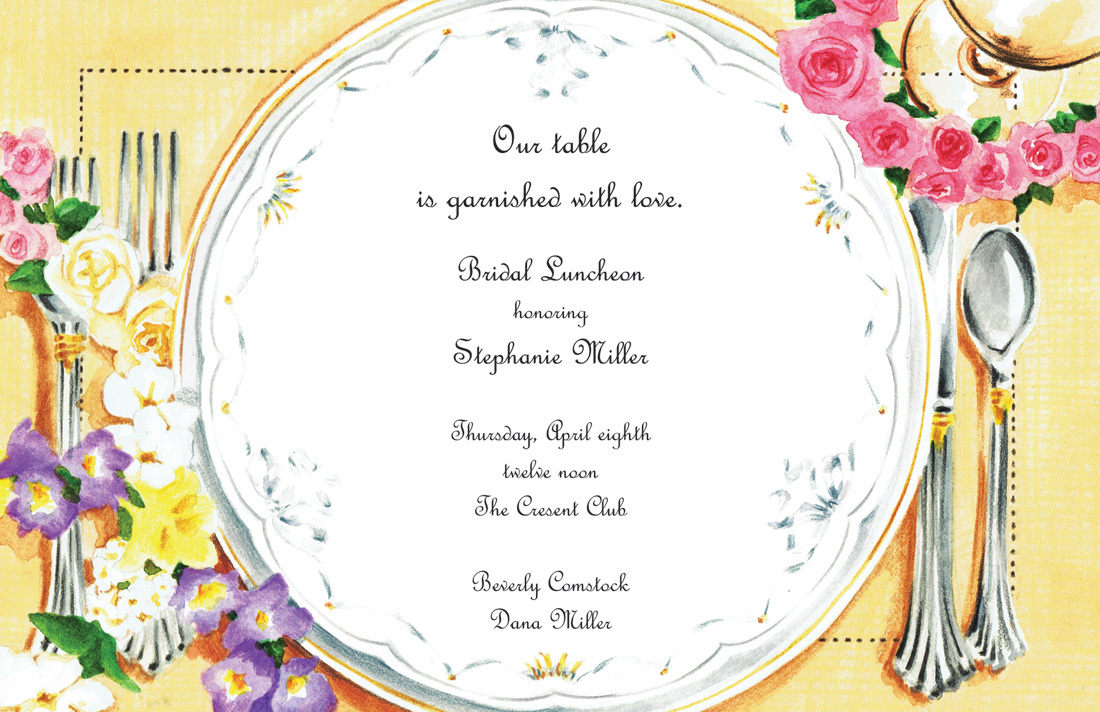 Our table
is garnished with love.
Bridal Luncheon
honoring
Stephanie Miller
Thursday, April eighth
twelve noon
The Cresent Club
Beverly Comstock
Dana Miller